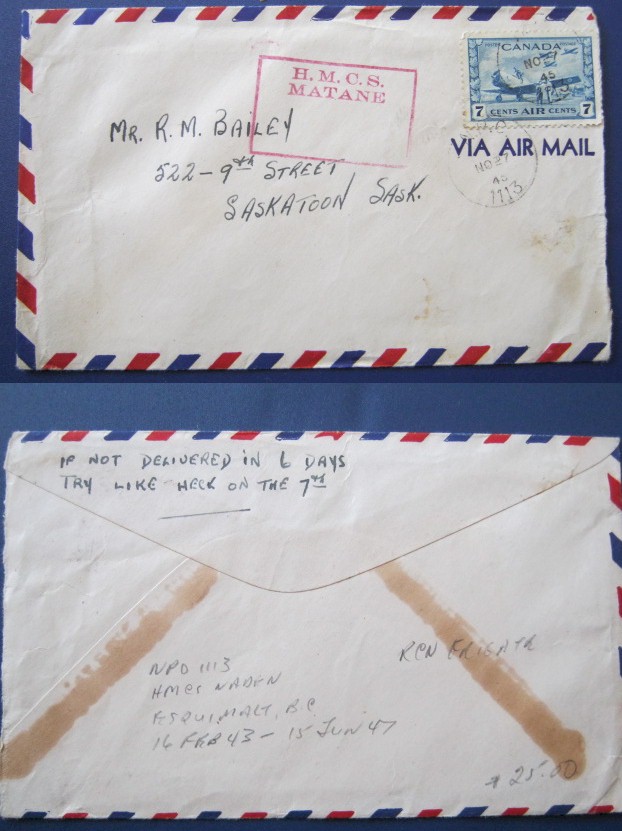 H.M.C.S.
MATANE
CANADA
7 CENTS AIR CENTS 7
NO 27
45
1113
VIA AIR MAIL
NO 27
45
1113
MR. R. M. BAILEY
522 - 9th STREET
SASKATOON SASK.
IF NOT DELIVERED IN 6 DAYS
TRY LIKE HECK ON THE 7th
NPO 1113
HMCS NADEN
ESQUIMALT, B.C.
16 FEB 43 - 15 JUN 47
RCN FRIGATE
25.00